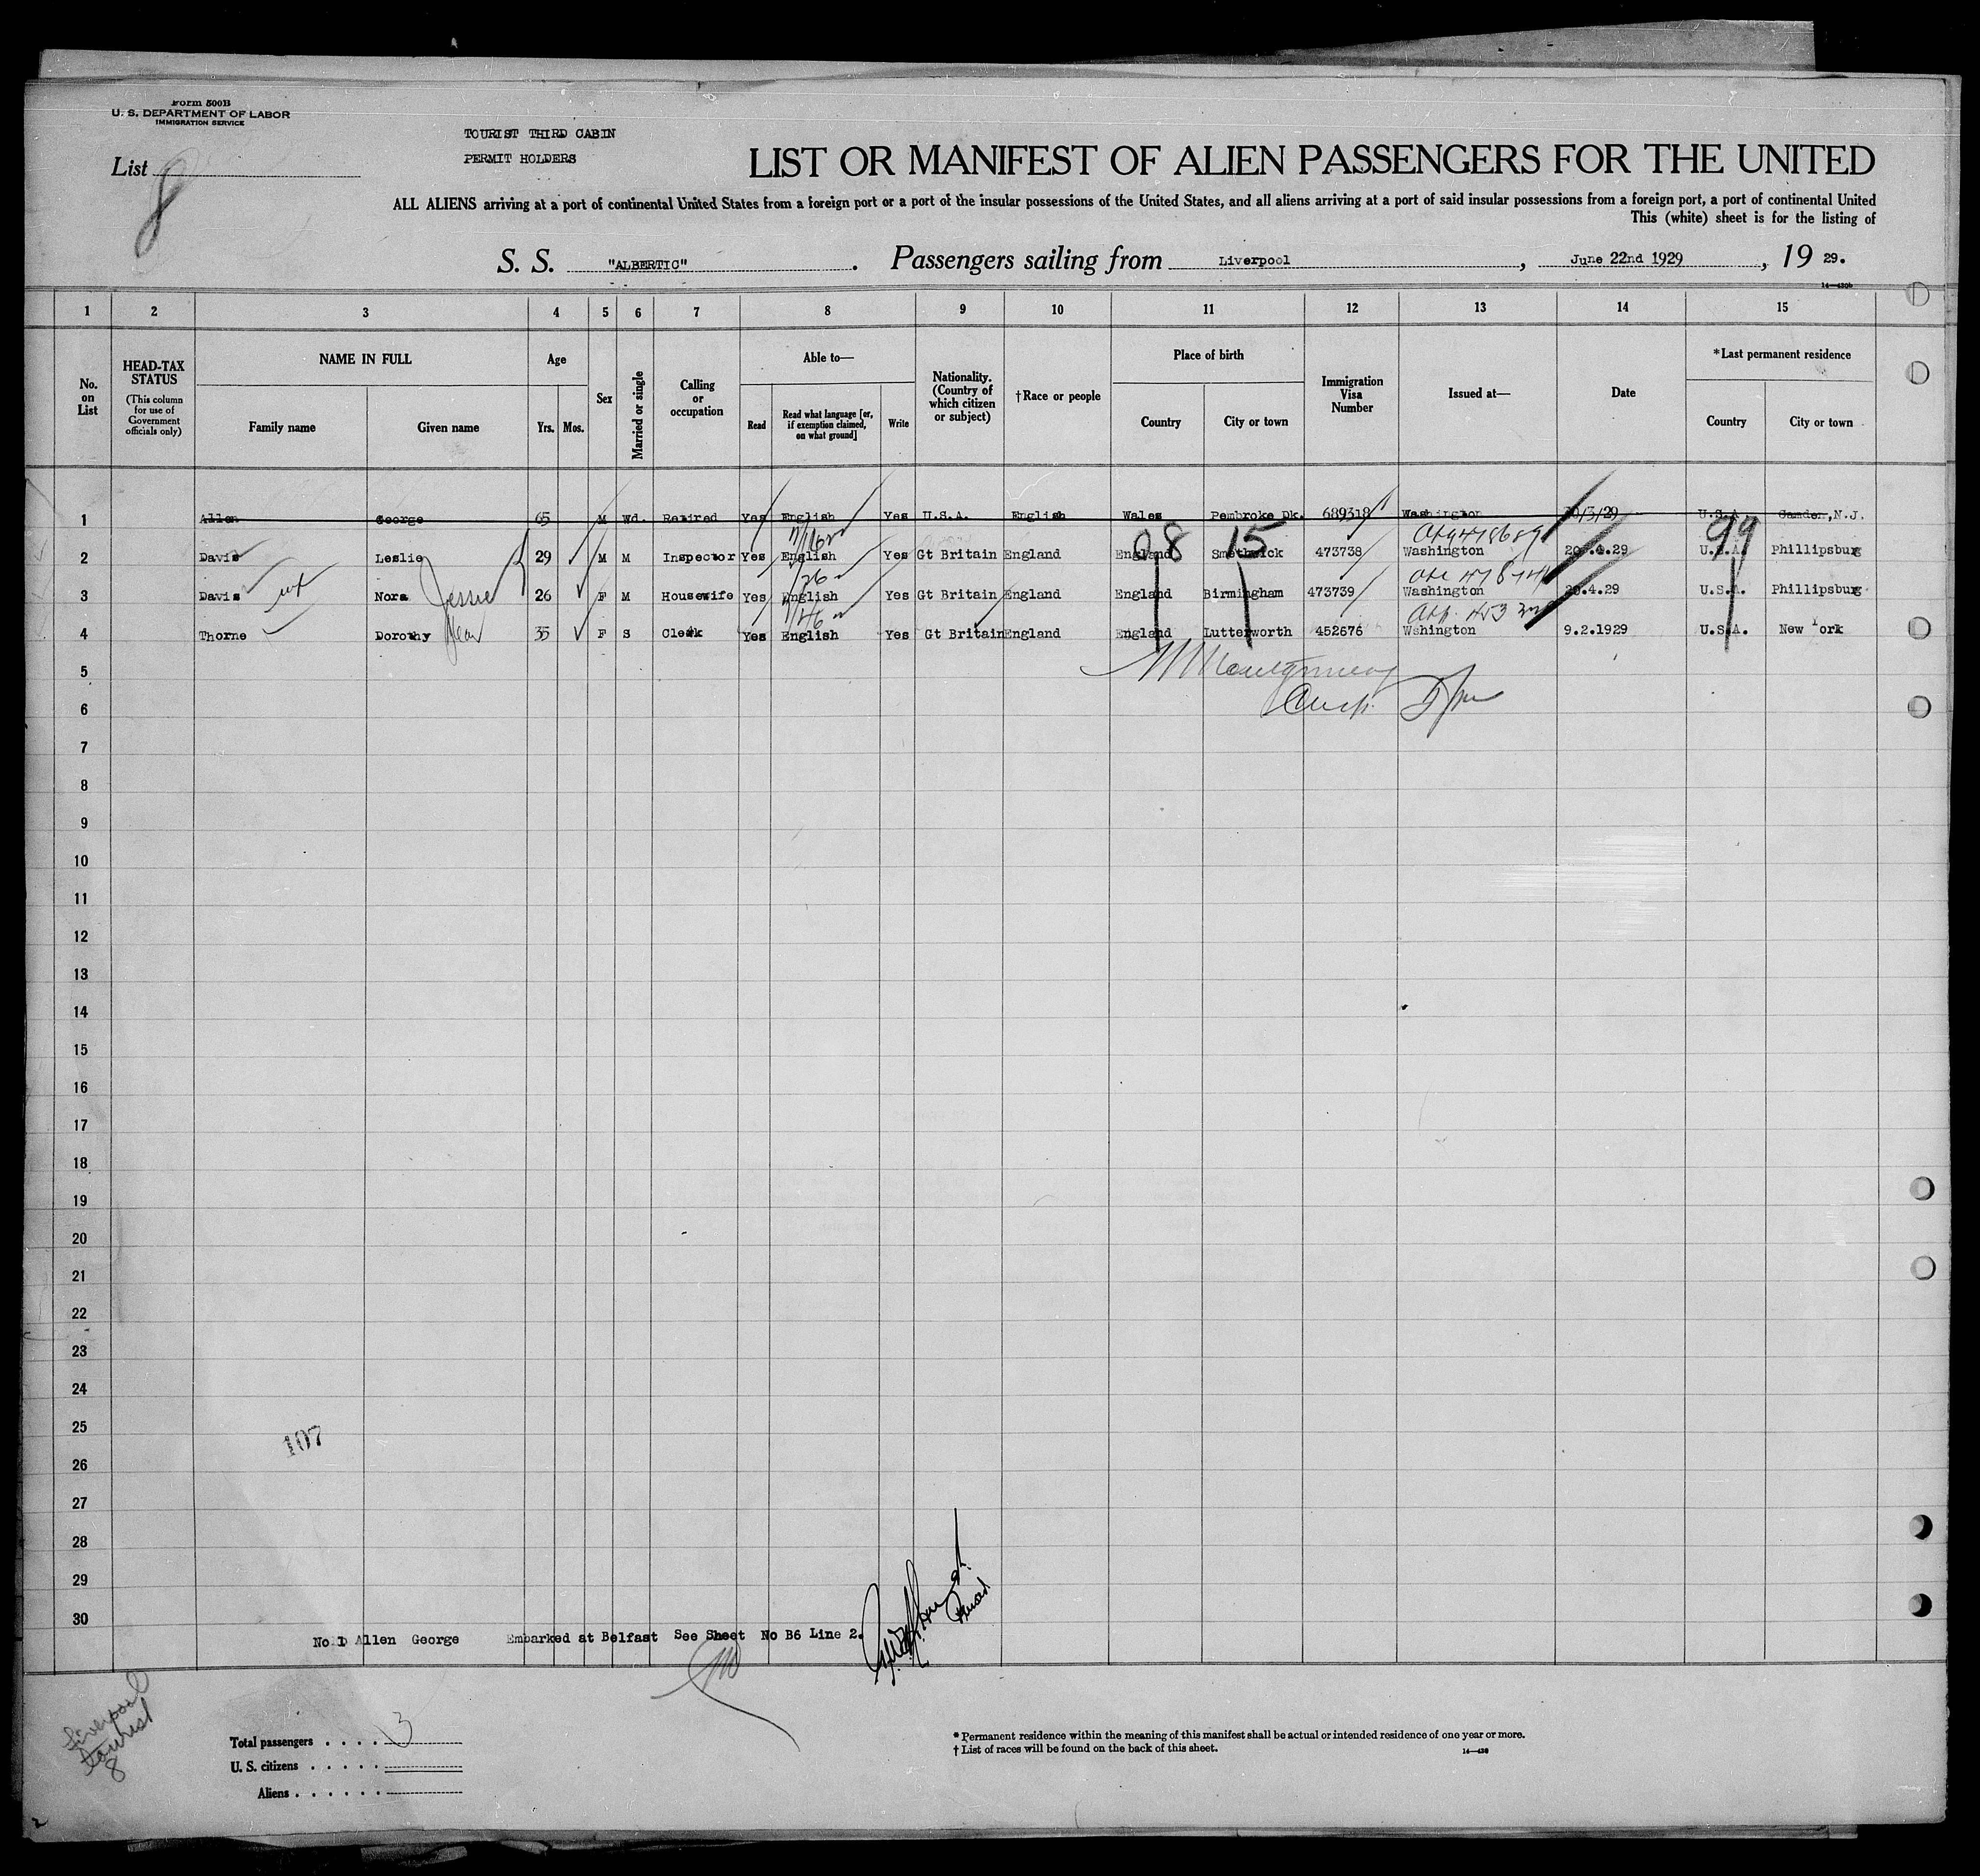 Form 500B
U. S. DEPARTMENT OF LABOR
IMMIGRATION SERVICE
List 8
TOURIST THIRD CABIN
PERMIT HOLDERS
LIST OR MANIFEST OF ALIEN PASSENGERS FOR THE UNITED
ALL ALIENS arriving at a port of continental United States from a foreign port or a port of the insular possessions of the United States, and all aliens arriving at a port of said insular possessions from a foreign port, a port of continental United
This (white) sheet is for the listing of
S. S. "ALBERTIC". Passengers sailing from Liverpool, June 22nd 1929, 19 29.
14—430b
1 2 3 4 5 6 7 8 9 10 11 12 13 14 15
No. on List
HEAD-TAX STATUS
(This column for use of Government officials only)
NAME IN FULL
Family name Given name
Age
Yrs. Mos.
Sex
Married or single
Calling or occupation
Able to—
Read Read what language [or, if exemption claimed, on what ground] Write
Nationality. (Country of which citizen or subject)
†Race or people
Place of birth
Country City or town
Immigration Visa Number
Issued at—
Date
*Last permanent residence
Country City or town
1 Allen George 65 M Wd. Retired Yes English Yes U.S.A. English Wales Pembroke Dk. 689318 Washington 30/3/29 U.S.A. Camden, N.J.
08 15 99
2 Davis Leslie 29 M M Inspector Yes English Yes Gt Britain England England Smethwick 473738 Washington 20.4.29 U.S.A. Phillipsburg
3 Davis wf Nora Jessie 26 F M Housewife Yes English Yes Gt Britain England England Birmingham 473739 Washington 20.4.29 U.S.A. Phillipsburg
4 Thorne Dorothy Jean 35 F S Clerk Yes English Yes Gt Britain England England Lutterworth 452676 Wshington 9.2.1929 U.S.A. New York
5
6
7
8
9
10
11
12
13
14
15
16
17
18
19
20
21
22
23
24
25
107
26
27
28
29
30
No 1 Allen George Embarked at Belfast See Sheet No B6 Line 2.
Liverpool
tourist
8
Total passengers . . . . 3
U. S. citizens . . . . .
Aliens . . . . . .
* Permanent residence within the meaning of this manifest shall be actual or intended residence of one year or more.
† List of races will be found on the back of this sheet.
14—430